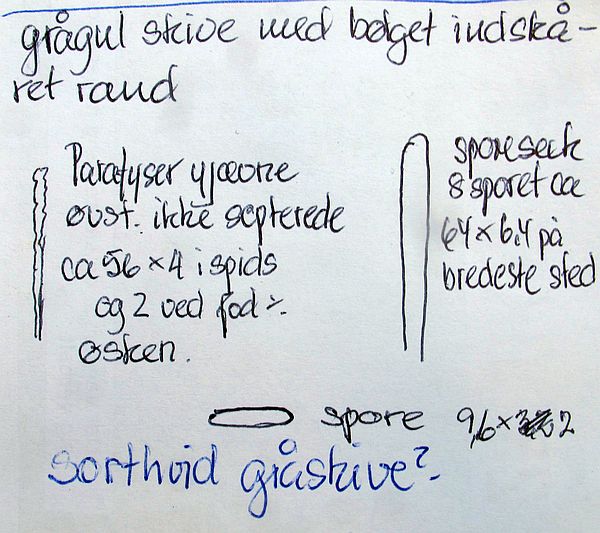 grågul skive med bølget indskå-
ret rand
Parafyser ujævne
øvst. ikke septerede
ca 56 × 4 i spids
og 2 ved fod
øsken.
sporesæk
8 sporet ca
64 × 6.4 på
bredeste sted
spore 9,6 × 2
Sorthvid gråskive?